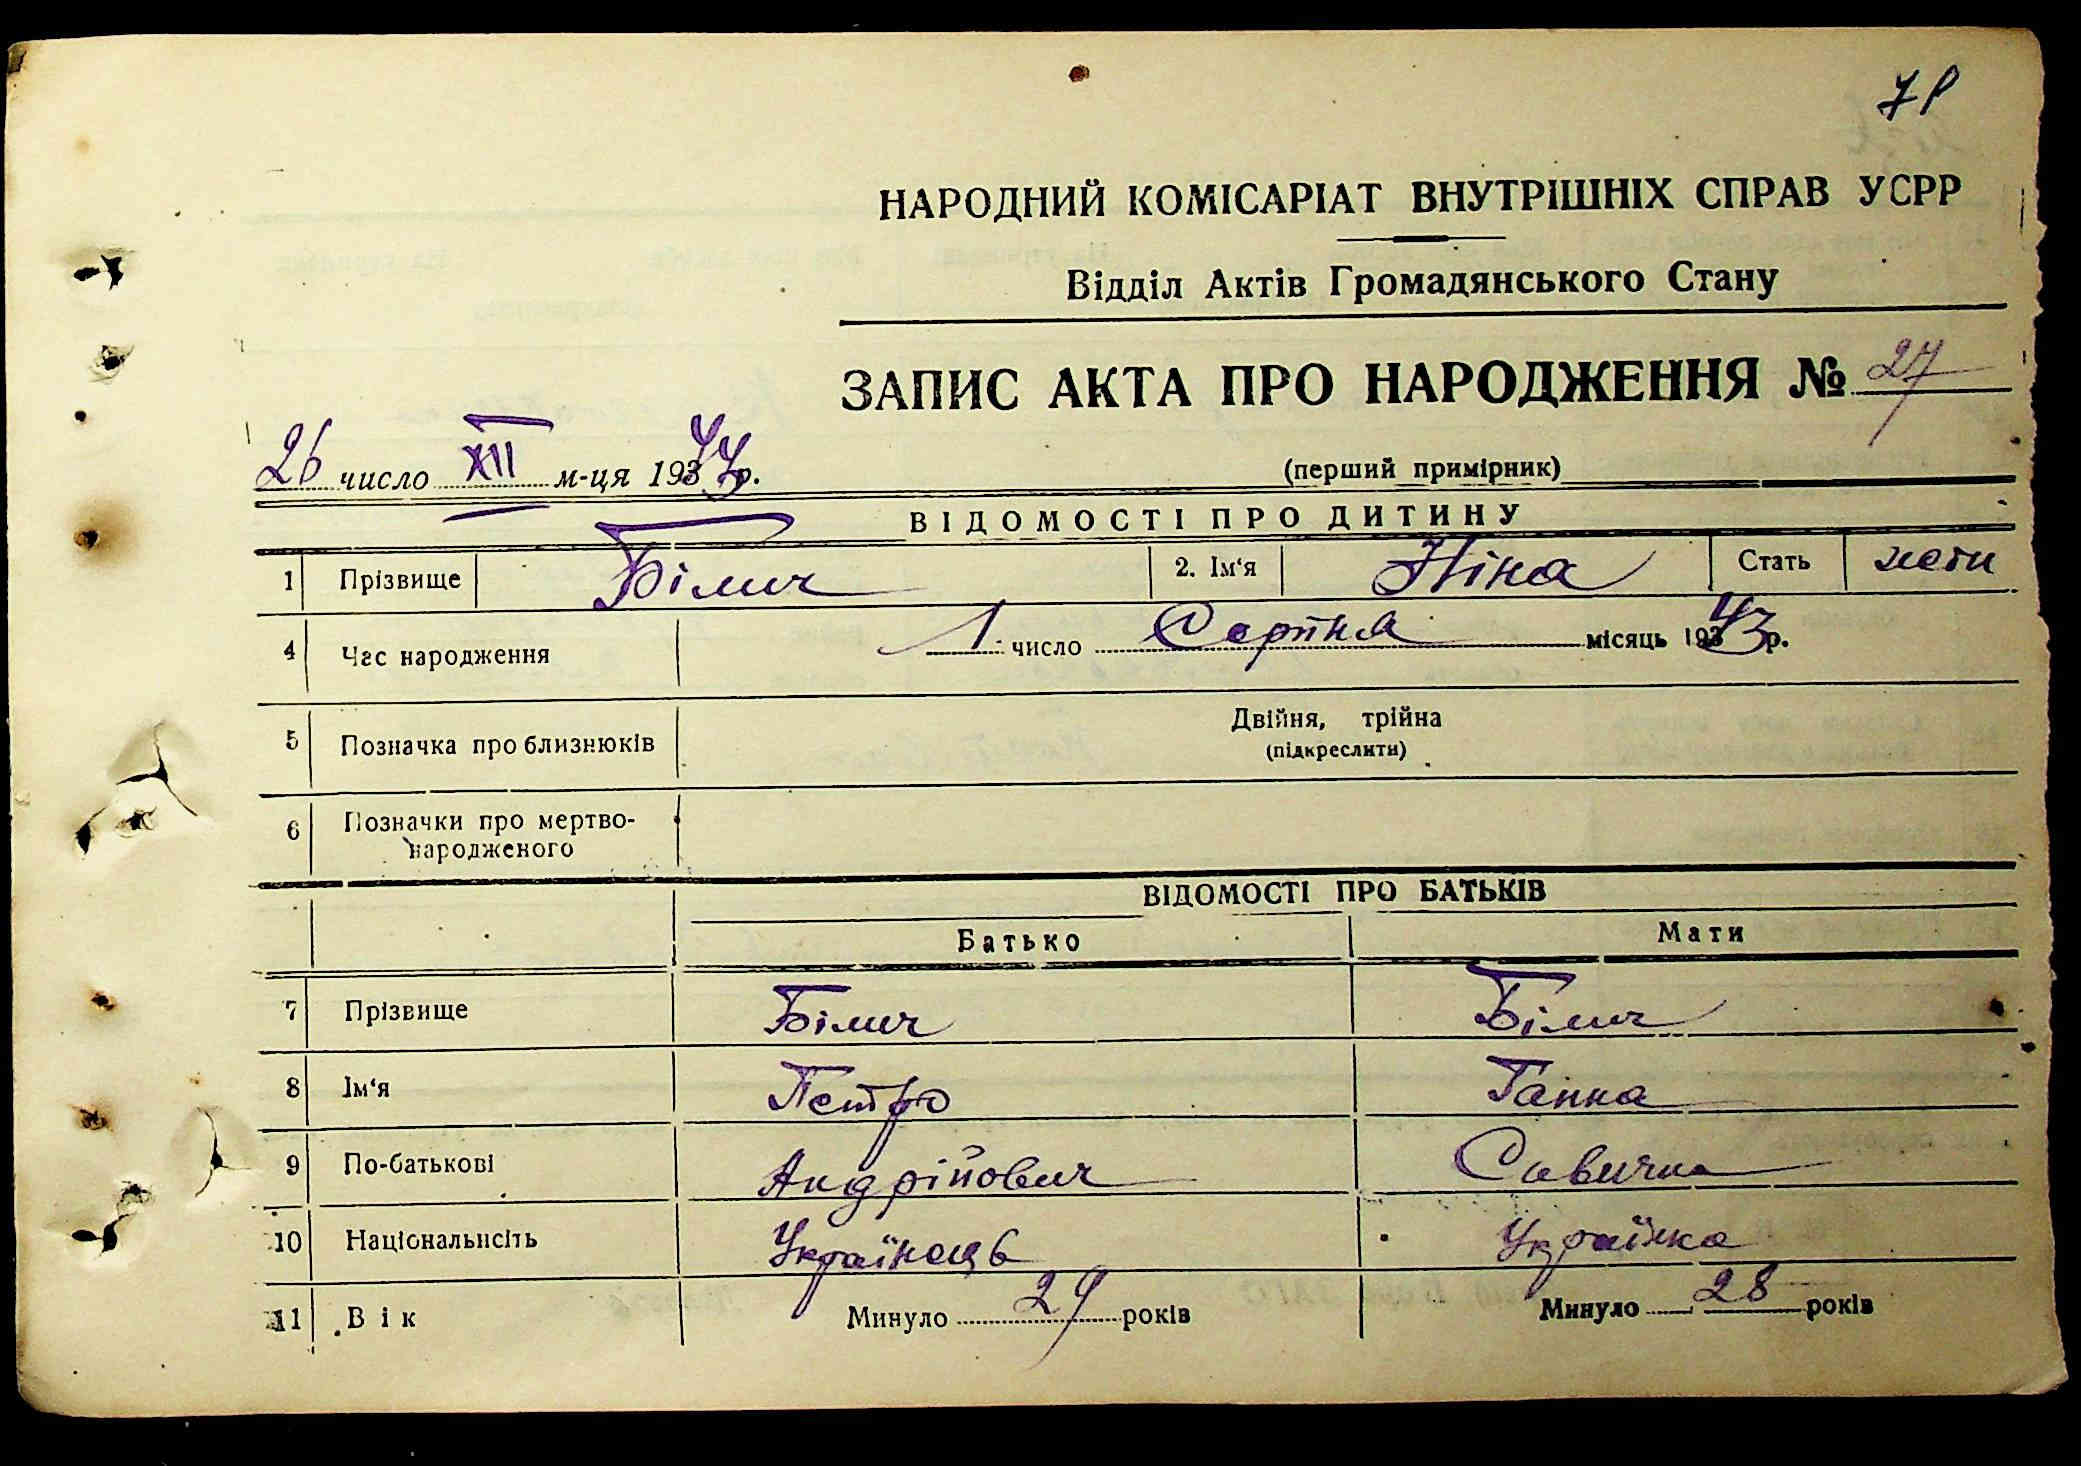 НАРОДНИЙ КОМІСАРІАТ ВНУТРІШНІХ СПРАВ УСРР
Відділ Актів Громадянського Стану
ЗАПИС АКТА ПРО НАРОДЖЕННЯ № 27
26 число XII м-ця 193 р.
(перший примірник)
ВІДОМОСТІ ПРО ДИТИНУ
1 Прізвище Білич 2. Ім'я Ніна Стать
4 Час народження 1 число Серпня місяць 1943 р.
5 Позначка про близнюків Двійня, трійна
(підкреслити)
6 Позначки про мертво-
народженого
ВІДОМОСТІ ПРО БАТЬКІВ
Батько Мати
7 Прізвище Білич Білич
8 Ім'я Петро Ганна
9 По-батькові Андрійович Савична
10 Національність Українець Українка
11 Вік Минуло 29 років Минуло 28 років